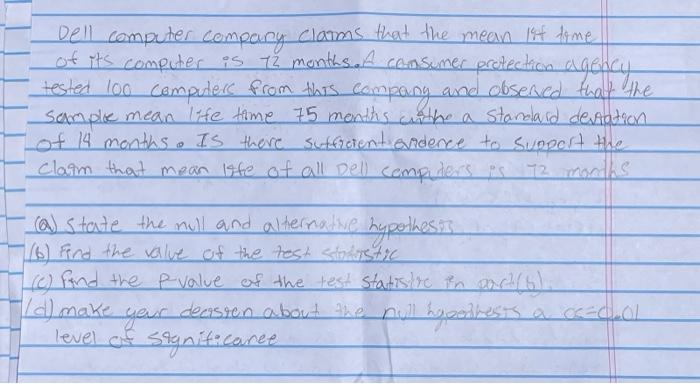 Dell computer company claims that the mean life time
of its computer is 72 months. A consumer protection agency
tested 100 computers from this company and observed that the
sample mean life time 75 months withe a standard deviation
of 14 months. Is there sufficient evidence to support the
claim that mean life of all Dell computers is 72 months
(a) State the null and alternative hypothesis
(b) Find the value of the test statistic
(c) find the P-value of the test statistic in part(b).
(d) make your decision about the null hypothesis a α=0.01
level of significance